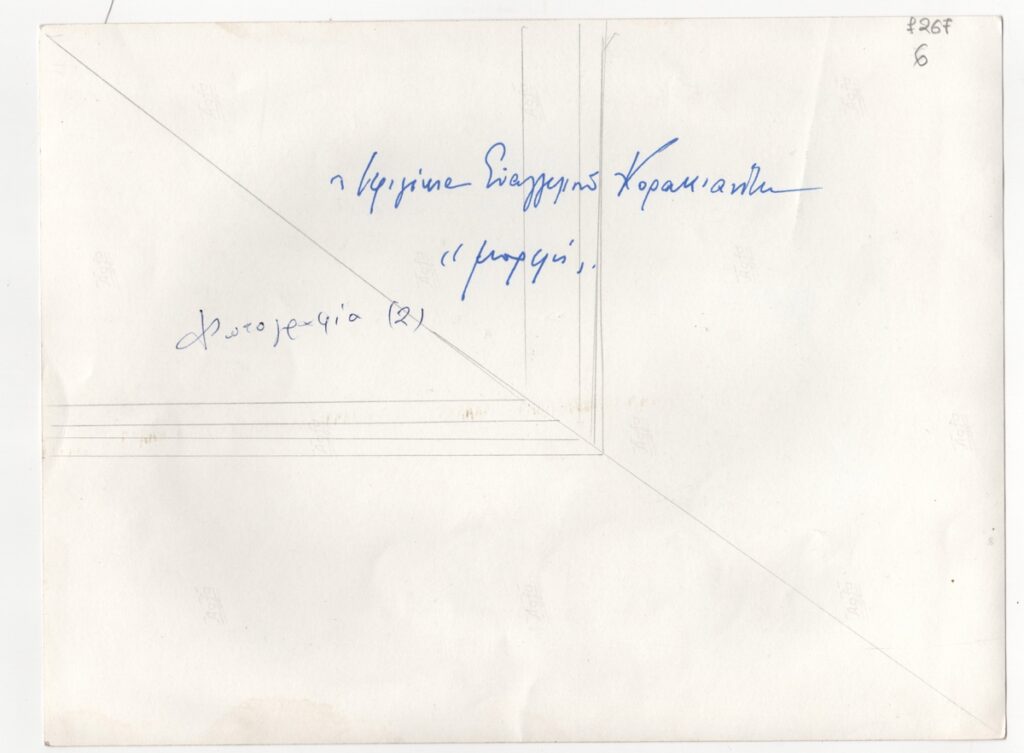 f267
6
η Ιφιγένεια Ευαγγελινού Κορακιανίτη
"μορφή".
Φωτογραφία (2)